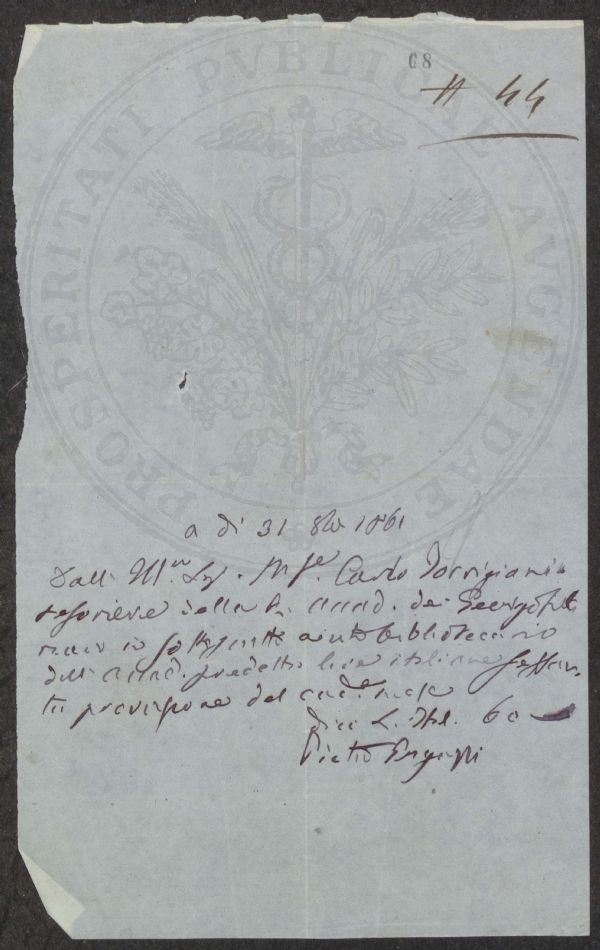 PROSPERITATI PVBLICAE AVGENDAE
68
# 44
a dì 31 8bre 1861
Dall' Ill.mo Sig. M.se Carlo Torrigiani
tesoriere della R. Accad. dei Georgofili
io sottoscritto aiuto bibliotecario
dell' Accad. predetta lire italiane sessan
ta provvisione del cad.e mese
dico L. Ital. 60
Pietro